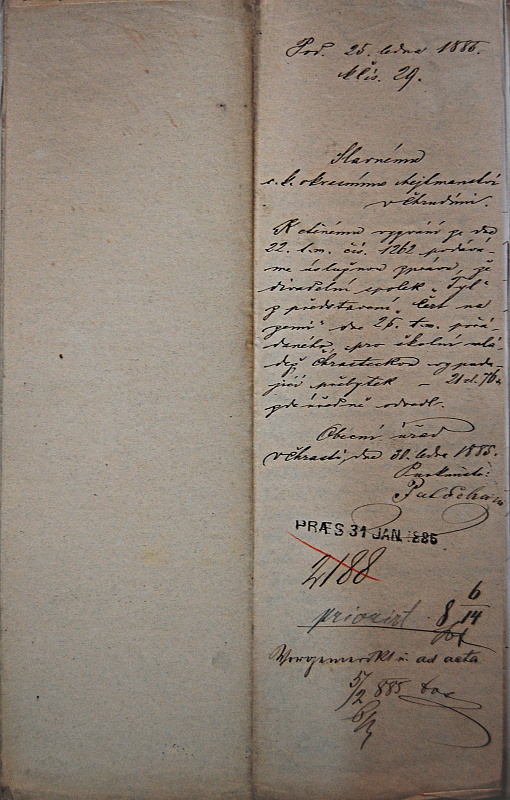 Pod. 25. ledna 1885.
čís. 29.
Slavnému
c. k. okresnímu hejtmanství
v Chrudimi.
K ctěnému vyzvání ze dne
22. t. m. čís. 1262 podává-
me úslužnou zprávu, že
divadelní spolek „Tyl“
z představení „Čert na
zemi“ dne 25. t. m. pořá-
daného, pro školní mlá-
dež Chrasteckou vypada-
jící přebytek — 21 zl. 76
zde úředně odvedl.
Obecní úřad
v Chrasti, dne 30. ledna 1885.
Purkmistr:
PRÆS 31 JAN. 1885
2188
priorirt 8 6/14
Vorgemerkt u. ad acta
5/2 885